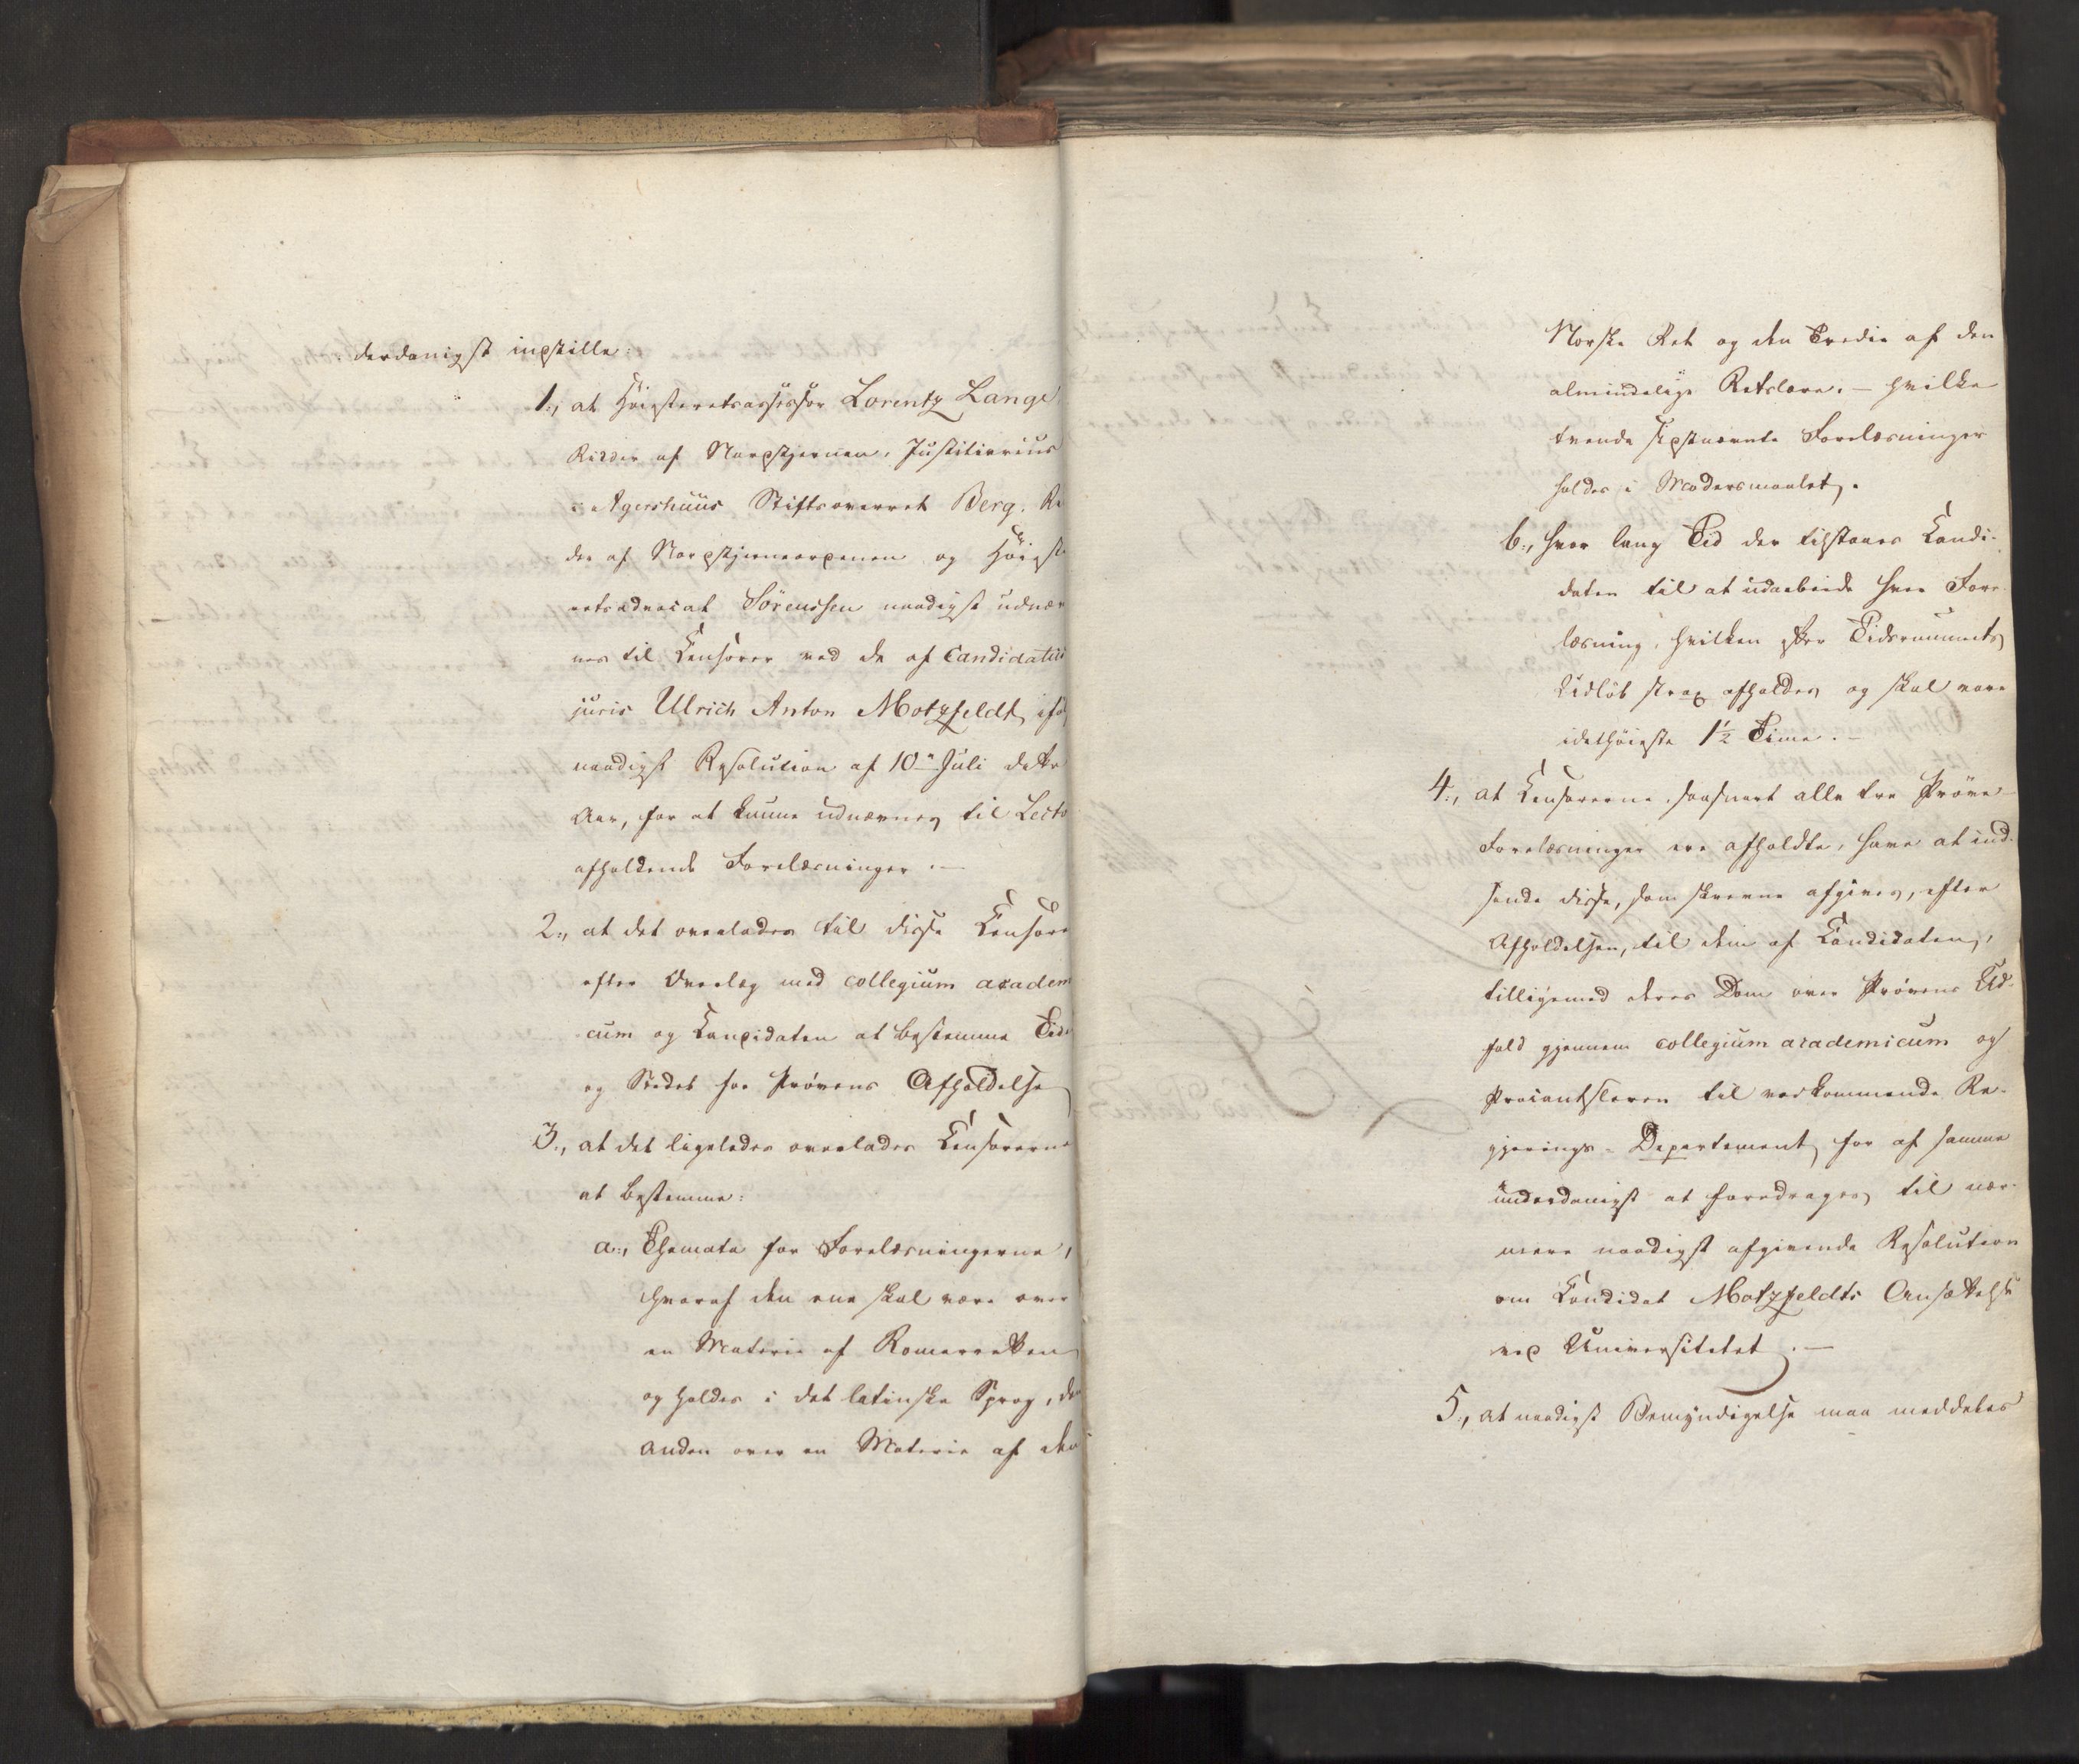 derdanigst indstille:
1., at Höiesteretsassessor Lorentz Lange
Ridder af Nordstjernen, Justitiarius
i Agershuus Stiftsoverret Berg, Rid
der af Nordstjerneordenen og Höieste
retsadvocat Sörenssen naadigst udnæv
nes til Censorer ved de af Candidatus
juris Ulrich Anton Motzfeldt ifølg
naadigst Resolution af 10n Juli dette
Aar, for at kunne udnævnes til Lecto
afholdende Forelæsninger. —
2., at det overlades til disse Censore
efter Overlæg med collegium academ
cum og Candidaten at bestemme Tide
og Stedet for Prøvens Afholdelse
3., at det ligeledes overlades Censorerne
at bestemme:
a., Themata for Forelæsningerne,
hvoraf den ene skal være over
en Materie af Romerretten
og holdes i det latinske Sprog, den
anden over en Materie af den
Norske Ret og den Tredie af den
almindelige Retslære. — hvilke
tvende sidstnævnte Forelæsninger
holdes i Modersmaalet.
b., hvor lang Tid der tilstaaes Candi-
daten til at udarbeide hver Fore-
læsning, hvilken efter Tidsrummets
Udløb strax afholdes og skal vare
idethöieste 1½ Time. —
4., at Censorerne, saasnart alle tre Prøve-
Forelæsninger ere afholdte, have at ind-
sende disse, som skrevne afgives, efter
Afholdelsen, til dem af Candidaten,
tilligemed deres Dom over Prøvens Ud-
fald gjennem collegium academicum og
Procantsleren til vedkommende Re-
gjerings-Departement for af samme
underdanigst at foredrages til nær-
mere naadigst afgivende Resolution
om Candidat Motzfeldts Ansættelse
ved Universitetet. —
5., at naadigst Bemyndigelse maa meddeles